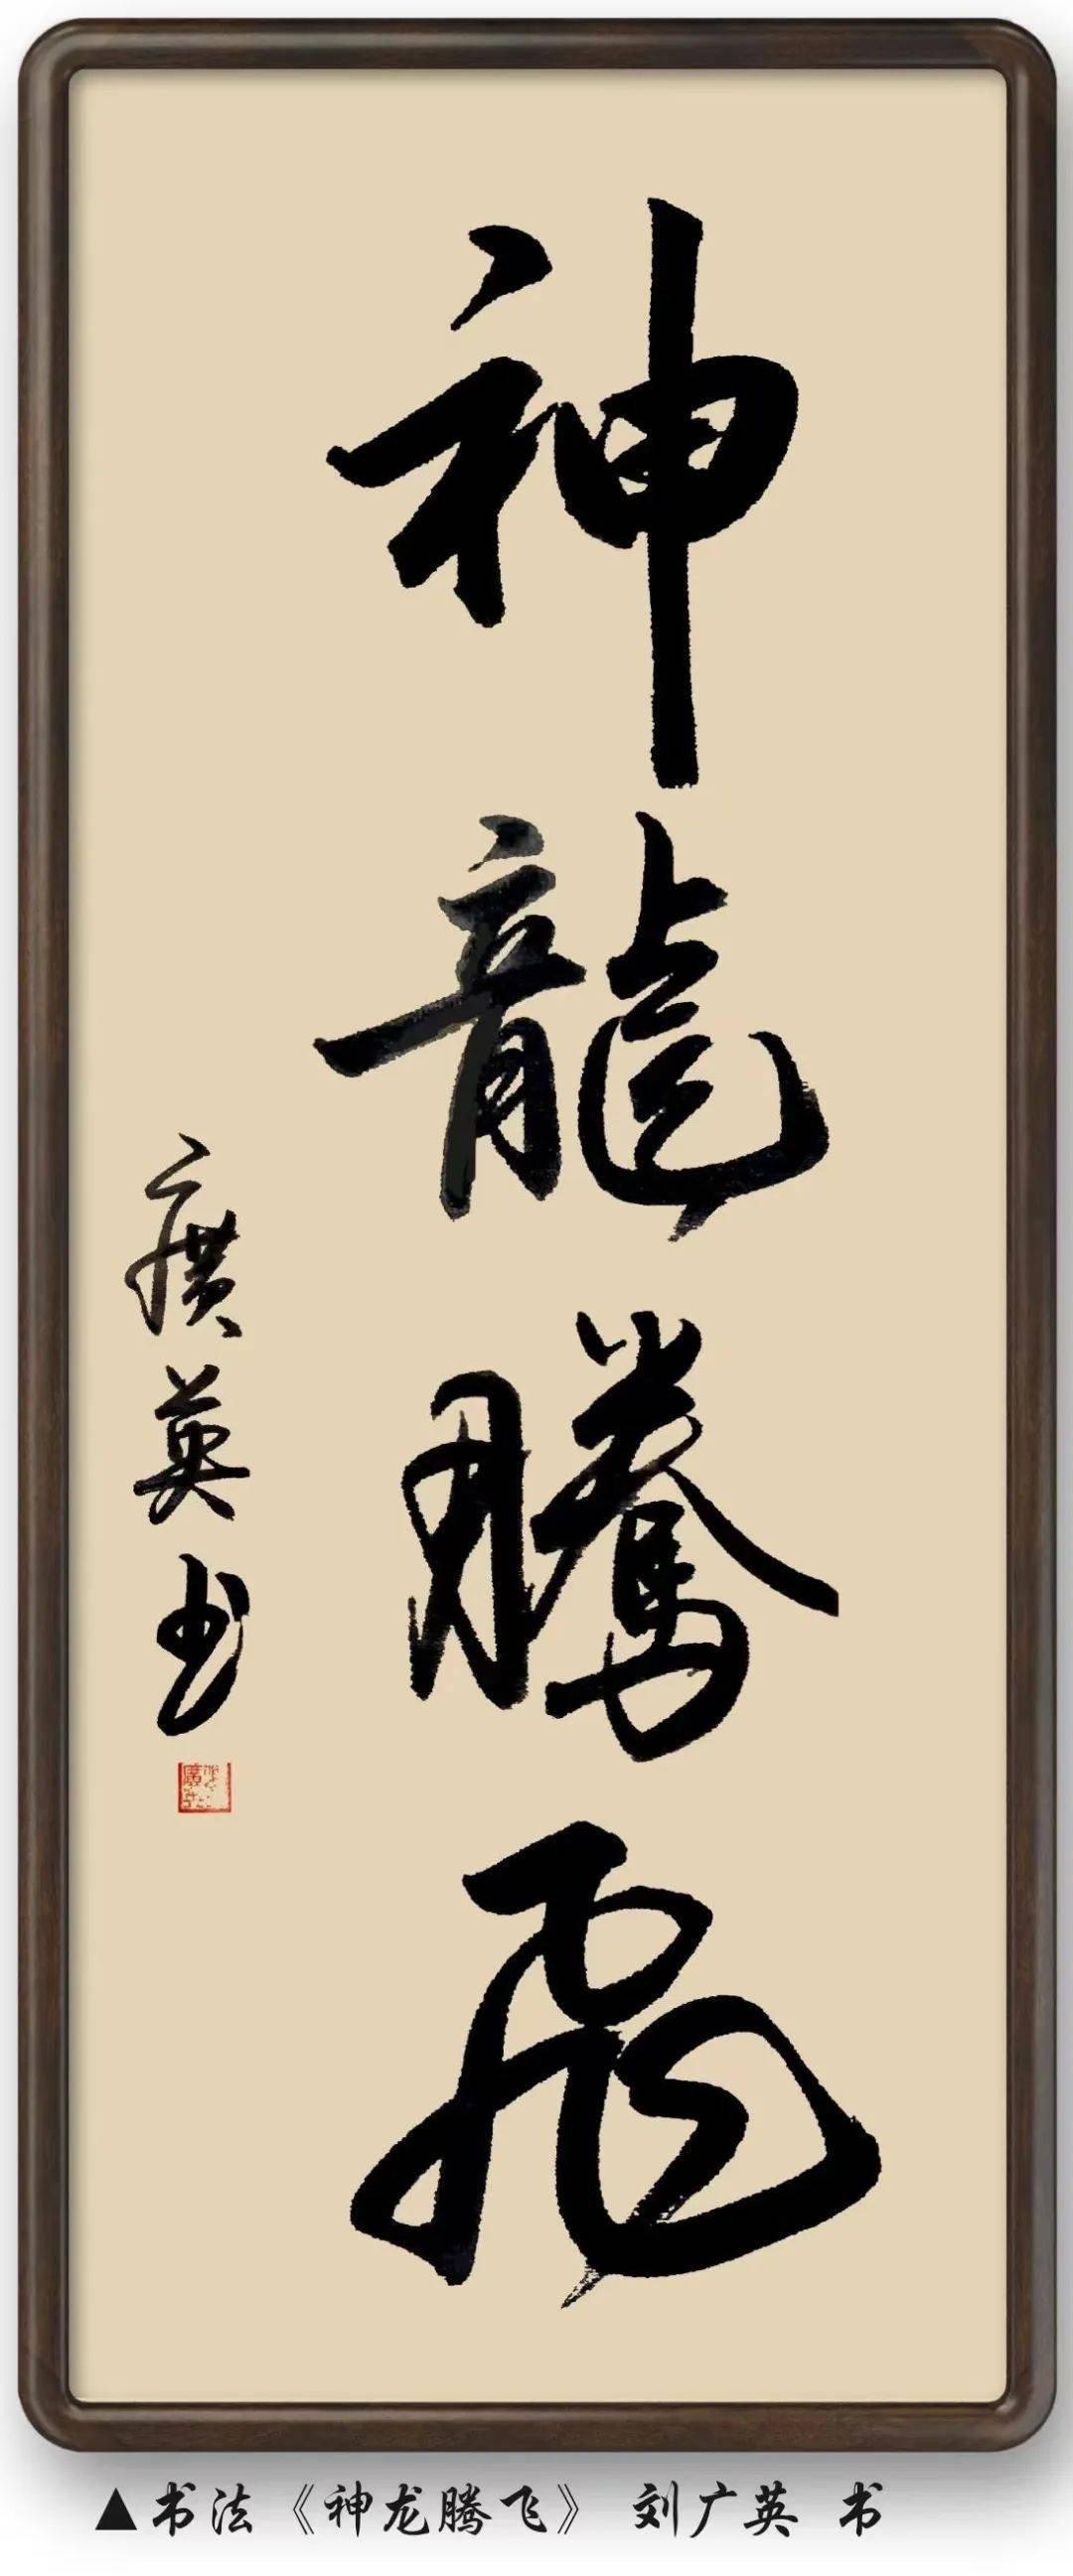 神龍騰飛
廣英书
▲书法《神龙腾飞》 刘广英 书